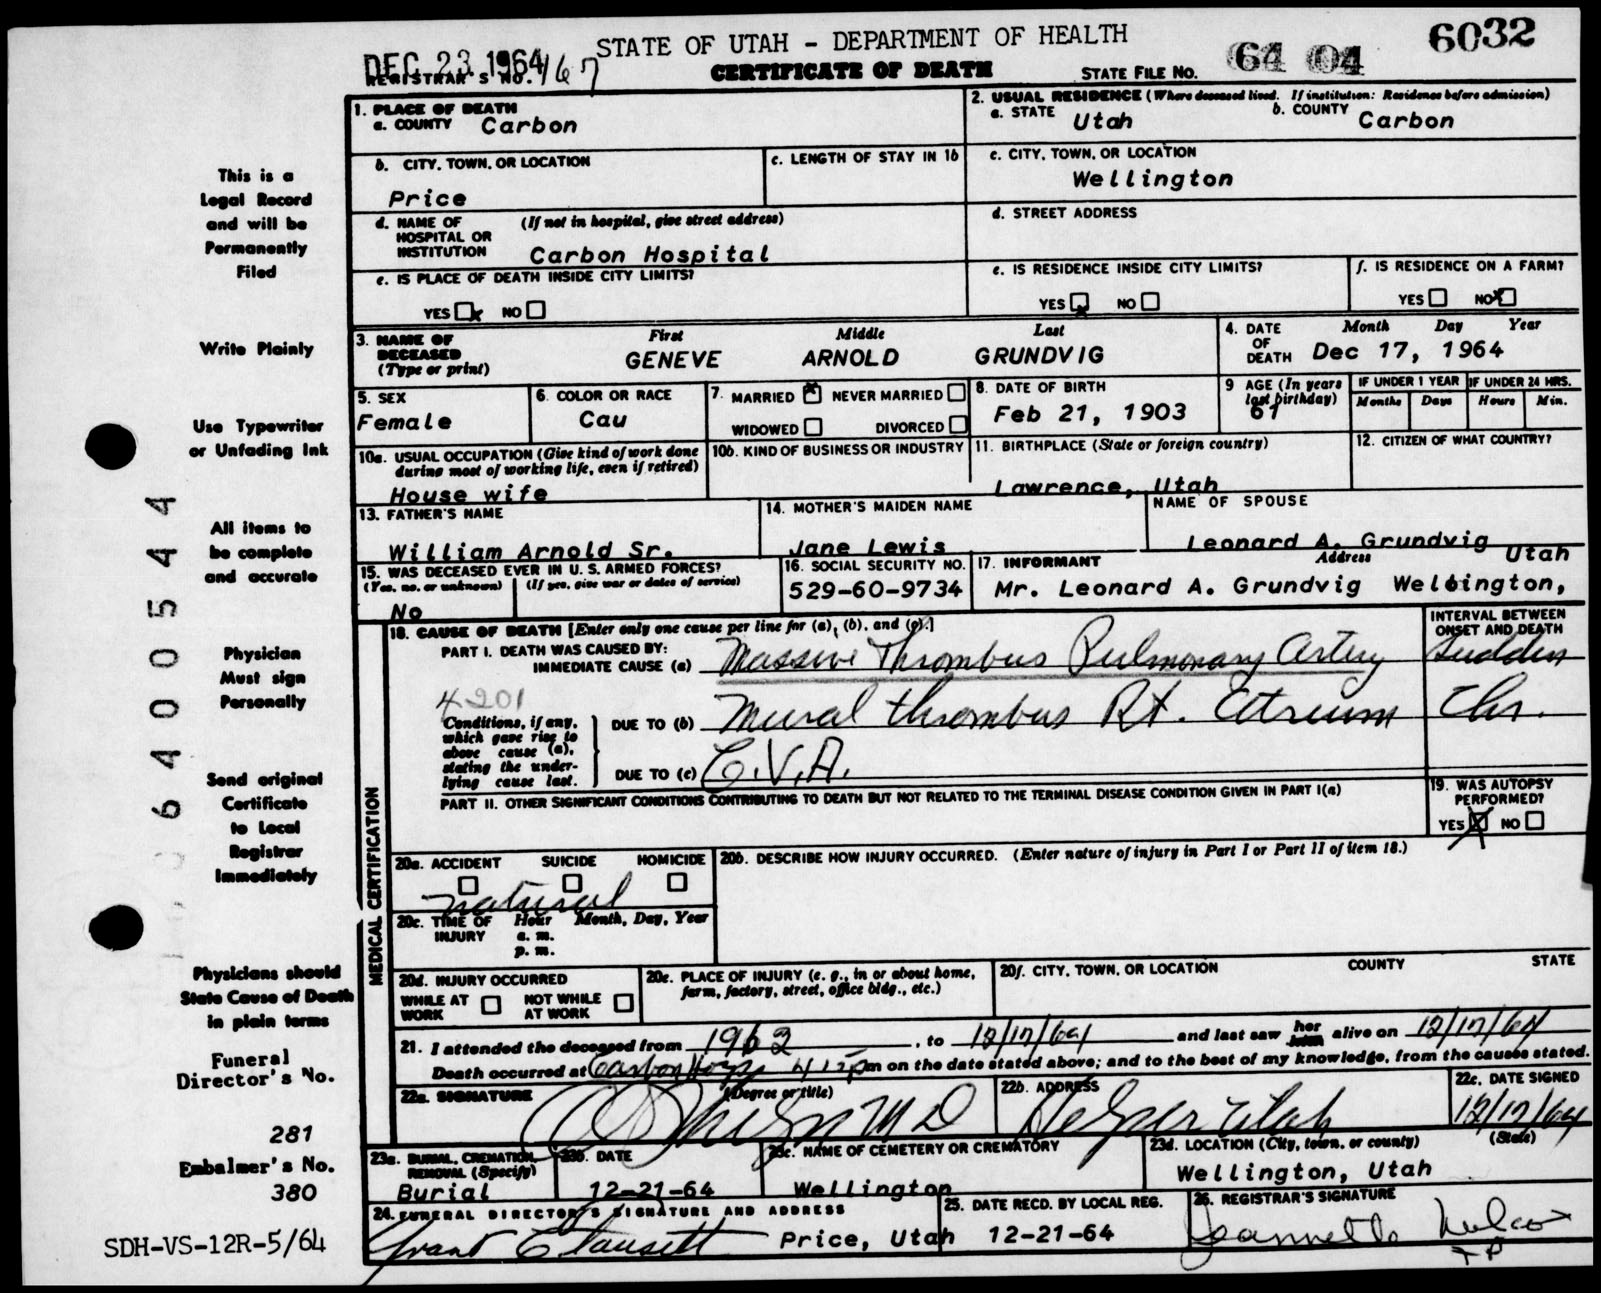 DEC 23 1964
STATE OF UTAH - DEPARTMENT OF HEALTH
6032
REGISTRAR'S NO. 167
CERTIFICATE OF DEATH
STATE FILE NO. 64 04
1. PLACE OF DEATH
a. COUNTY Carbon
2. USUAL RESIDENCE (Where deceased lived. If institution: Residence before admission)
a. STATE Utah b. COUNTY Carbon
b. CITY, TOWN, OR LOCATION
Price
c. LENGTH OF STAY IN 1b
c. CITY, TOWN, OR LOCATION
Wellington
d. NAME OF HOSPITAL OR INSTITUTION (If not in hospital, give street address)
Carbon Hospital
d. STREET ADDRESS
e. IS PLACE OF DEATH INSIDE CITY LIMITS?
YES x NO
e. IS RESIDENCE INSIDE CITY LIMITS?
YES x NO
f. IS RESIDENCE ON A FARM?
YES NO x
3. NAME OF DECEASED (Type or print)
First Middle Last
GENEVE ARNOLD GRUNDVIG
4. DATE OF DEATH Month Day Year
Dec 17, 1964
5. SEX
Female
6. COLOR OR RACE
Cau
7. MARRIED x NEVER MARRIED
WIDOWED DIVORCED
8. DATE OF BIRTH
Feb 21, 1903
9 AGE (In years last birthday)
61
IF UNDER 1 YEAR
Months Days
IF UNDER 24 HRS.
Hours Min.
10a. USUAL OCCUPATION (Give kind of work done during most of working life, even if retired)
House wife
10b. KIND OF BUSINESS OR INDUSTRY
11. BIRTHPLACE (State or foreign country)
Lawrence, Utah
12. CITIZEN OF WHAT COUNTRY?
13. FATHER'S NAME
William Arnold Sr.
14. MOTHER'S MAIDEN NAME
Jane Lewis
NAME OF SPOUSE
Leonard A. Grundvig
15. WAS DECEASED EVER IN U. S. ARMED FORCES?
(Yes, no, or unknown) (If yes, give war or dates of service)
No
16. SOCIAL SECURITY NO.
529-60-9734
17. INFORMANT Address Utah
Mr. Leonard A. Grundvig Wellington,
MEDICAL CERTIFICATION
18. CAUSE OF DEATH [Enter only one cause per line for (a), (b), and (c).]
INTERVAL BETWEEN ONSET AND DEATH
PART I. DEATH WAS CAUSED BY:
IMMEDIATE CAUSE (a) Massive Thrombus Pulmonary Artery Sudden
4201
Conditions, if any, which gave rise to above cause (a), stating the underlying cause last.
DUE TO (b) Mural thrombus Rt. Atrium Chr.
DUE TO (c) C.V.A.
PART II. OTHER SIGNIFICANT CONDITIONS CONTRIBUTING TO DEATH BUT NOT RELATED TO THE TERMINAL DISEASE CONDITION GIVEN IN PART I(a)
19. WAS AUTOPSY PERFORMED?
YES X NO
20a. ACCIDENT SUICIDE HOMICIDE
natural
20b. DESCRIBE HOW INJURY OCCURRED. (Enter nature of injury in Part I or Part II of item 18.)
20c. TIME OF INJURY Hour Month, Day, Year
a. m.
p. m.
20d. INJURY OCCURRED
WHILE AT WORK NOT WHILE AT WORK
20e. PLACE OF INJURY (e. g., in or about home, farm, factory, street, office bldg., etc.)
20f. CITY, TOWN, OR LOCATION COUNTY STATE
21. I attended the deceased from 1962, to 12/17/64 and last saw her alive on 12/17/64
Death occurred at Carbon Hosp 4 15 pm on the date stated above; and to the best of my knowledge, from the causes stated.
22a. SIGNATURE (Degree or title)
M D
22b. ADDRESS
Helper Utah
22c. DATE SIGNED
12/17/64
23a. BURIAL, CREMATION, REMOVAL (Specify)
Burial
23b. DATE
12-21-64
23c. NAME OF CEMETERY OR CREMATORY
Wellington
23d. LOCATION (City, town, or county) (State)
Wellington, Utah
24. FUNERAL DIRECTOR'S SIGNATURE AND ADDRESS
Grant Price, Utah
25. DATE RECD. BY LOCAL REG.
12-21-64
26. REGISTRAR'S SIGNATURE
This is a
Legal Record
and will be
Permanently
Filed
Write Plainly
Use Typewriter
or Unfading Ink
All items to
be complete
and accurate
Physician
Must sign
Personally
Send original
Certificate
to Local
Registrar
Immediately
Physicians should
State Cause of Death
in plain terms
Funeral
Director's No.
281
Embalmer's No.
380
SDH-VS-12R-5/64
64000544